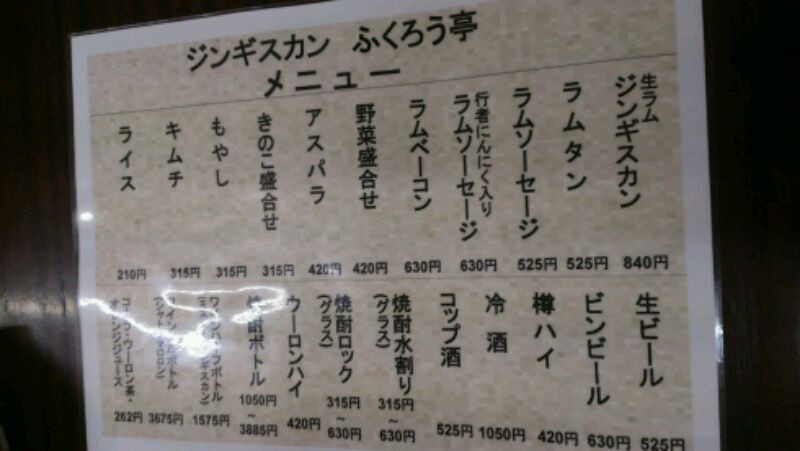 ジンギスカン ふくろう亭
メニュー
生ラム
ジンギスカン
840円
ラムタン
525円
ラムソーセージ
525円
行者にんにく入り
ラムソーセージ
630円
ラムベーコン
630円
野菜盛合せ
420円
アスパラ
420円
きのこ盛合せ
315円
もやし
315円
キムチ
315円
ライス
210円
生ビール
525円
ビンビール
630円
樽ハイ
420円
冷酒
1050円
コップ酒
525円
焼酎水割り
(グラス)
315円
~
630円
焼酎ロック
(グラス)
315円
~
630円
ウーロンハイ
420円
焼酎ボトル
1050円
~
3885円
ワインハーフボトル
1575円
ワインフルボトル
3675円
コーラ・ウーロン茶・
オレンジジュース
262円